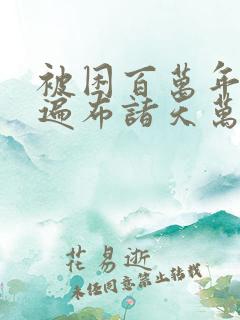 被困百萬年
遍布諸天萬
花易逝
未经同意禁止转载